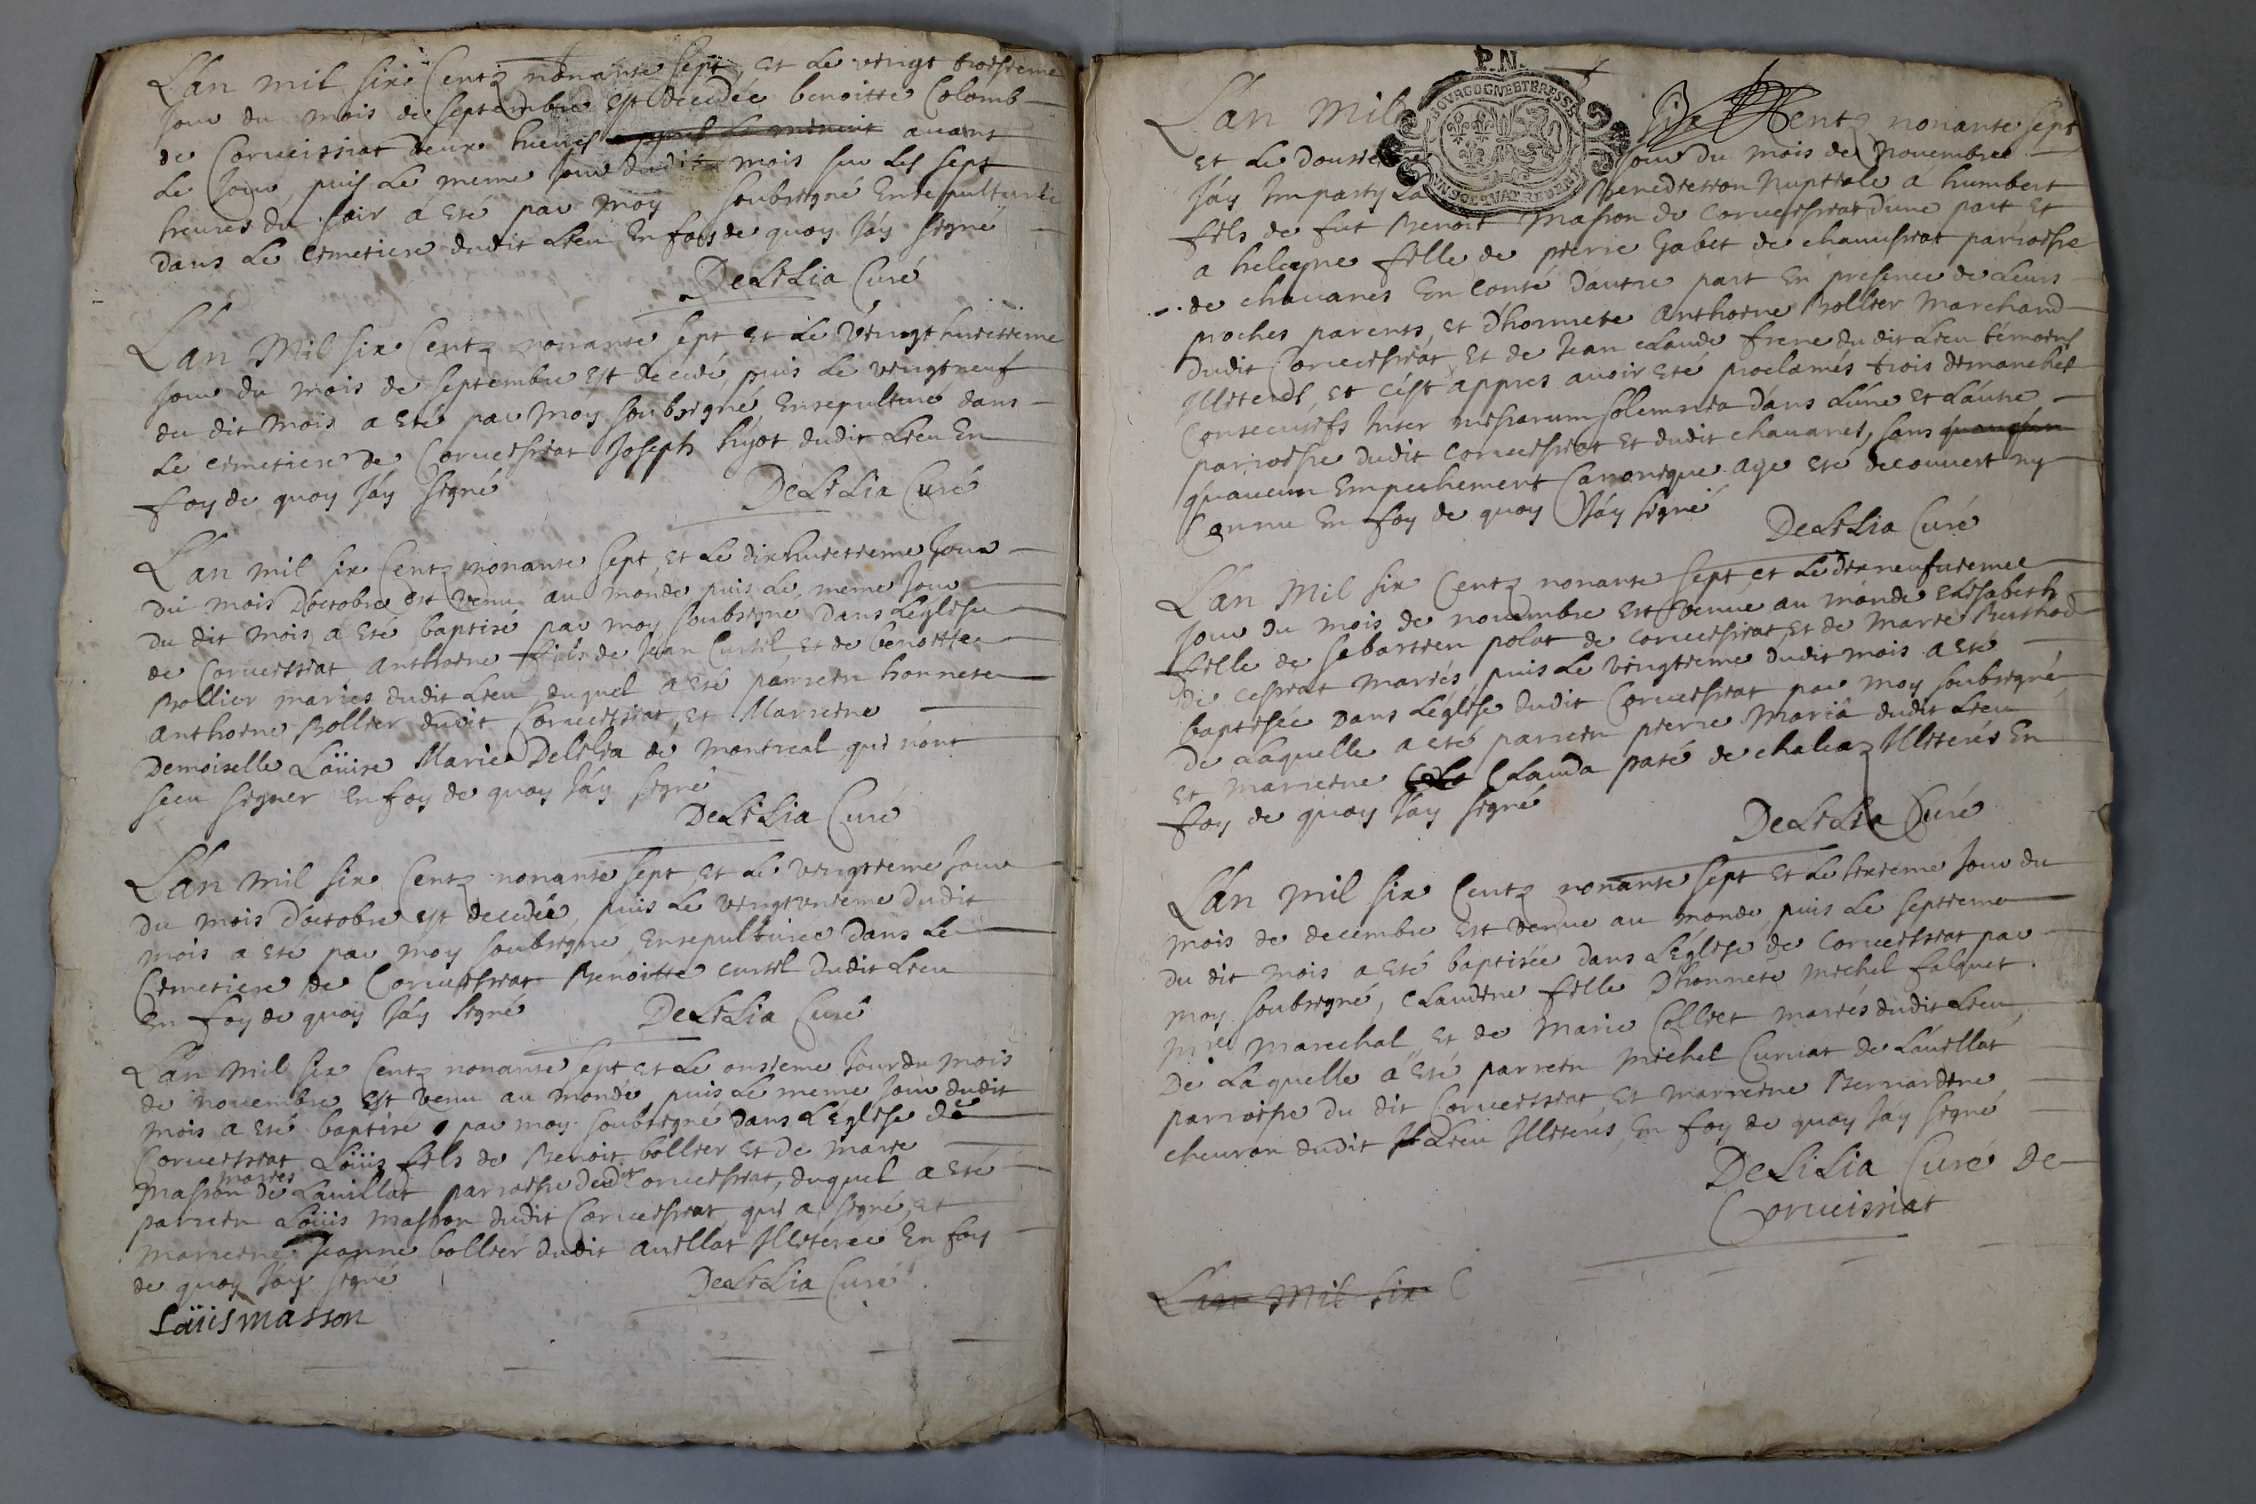 Lan mil six Centz nonante sept, et le vingt troisieme
Jour du mois de septembre est decedée benoitte Colomb
de Corveissiat deux heures apres le minuit avant
le Jour puis le meme Jour dudit mois sur les sept
heures du soir a eté par moy soubsigné Ensepulturée
dans le cimetiere dudit Lieu En foy de quoy J'áy signé
DeLiLia Curé
Lan Mil six Centz nonante sept et le vingt huitieme
Jour du mois de septembre est decedé, puis le vingt neuf
du dit mois a eté par moy soubsigné Ensepulturé dans
le cimetiere de Corveissiat Joseph huyot dudit Lieu En
foy de quoy J'áy signé
DeLiLia Curé
Lan mil six Centz nonante sept, et le dixhuitieme Jour
du mois D'octobre est venu au monde puis le meme Jour
du dit mois a eté baptisé par moy soubsigné Dans L'eglise
de Corveissiat anthoine fils de Jean Curtil et de benoitte
Bollier mariés dudit Lieu duquel a eté parrein honneste
anthoine Bollier dudit Corveissiat, et Marreine
Demoiselle Loüise Marie Delilia de montreal qui n'ont
sceu signer En foy de quoy J'áy signé
DeLiLia Curé
Lan mil six Centz nonante sept et le vingtieme Jour
du mois D'octobre est decedée, puis le vingt unieme dudit
mois a eté par moy soubsigné Ensepulturée Dans le
Cimetiere de Corveissiat Benoitte curtil dudit Lieu
En foy de quoy J'áy signé
DeLiLia Curé
Lan mil six Centz nonante sept et le onsieme Jour du mois
de novembre est venu au monde, puis le meme Jour dudit
mois a eté baptisé par moy soubsigné Dans L'Eglise de
Corveissiat Loüis fils de Benoit bollier et de marie
mariés
Masson de Lavillat parroisse dudit Corveissiat, duquel a eté
parrein Loüis masson dudit Corveissiat qui a signé, et
marreine Jeanne bollier dudit avillat Illiterée En foy
de quoy J'áy signé
DeLiLia Curé
Loüis masson
P.N.
BOVRGOGNE ET BRESSE
Lan Mil six Centz nonante sept
et le dousieme Jour du mois de Novembre
J'áy Imparty La Benediction Nuptiale á humbert
fils de fut Benoit Masson de Corveissiat d'une part et
a heleyne fille de pierre Gabet de chaussiat parroisse
de chavanes En Conté D'autre part En presence de Leurs
proches parents, et D'honnete anthoine Bollier Marchand
Dudit Corveissiat, et de Jean claude frene du dit Lieu témoins
Illiterés, et c'est appres avoir eté proclamés trois dimanches
Consecutifs Inter missarum solemnia dans L'une et L'autre
parroisse dudit Corveissiat et dudit chavanes, sans
qu'aucun Empechement Canonique aye eté decouvert ny
Connu En foy de quoy J'áy signé
DeLiLia Curé
Lan Mil six Centz nonante sept et le dixneufvieme
Jour du mois de novembre est venue au monde elisabeth
fille de sebastien polat de corveissiat, et de Marie Burthod
De cessiat Mariés, puis le vingtieme dudit mois a eté
baptisée Dans L'église dudit Corveissiat par moy soubsigné,
De Laquelle a eté parrein pierre Maria dudit Lieu
et marreine Clauda paté de chaleaz Illiterés En
foy de quoy J'áy signé
DeLiLia Curé
Lan mil six Centz nonante sept et le sixieme Jour du
mois de decembre est venue au monde, puis le septieme
du dit mois a eté baptisée dans L'Église de Corveissiat par
moy soubsigné, claudine fille D'honnete michel falquet
Mre Marechal, et de Marie Colliet mariés dudit Lieu,
De Laquelle a eté parrein Michel Curviat de Lavillat
parroisse du dit Corveissiat et marreine Bernardine
chevron dudit Lieu Illiterés, En foy de quoy J'áy signé
DeLiLia Curé de
Corveissiat
Lan Mil six C